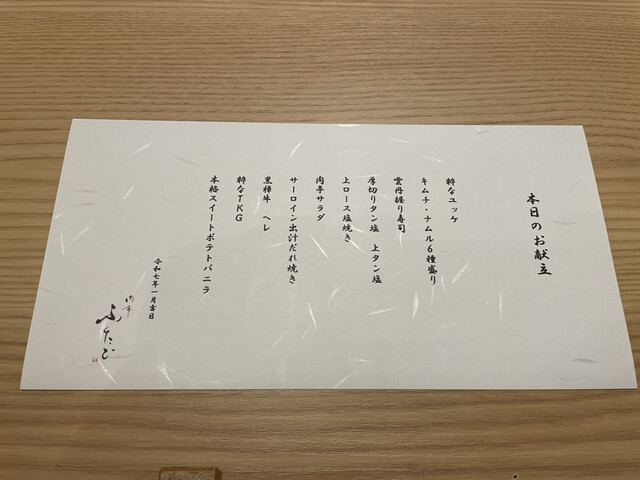 本日のお献立
粋なユッケ
キムチ・ナムル6種盛り
雲丹握り寿司
厚切りタン塩 上タン塩
上ロース塩焼き
肉亭サラダ
サーロイン出汁だれ焼き
黒樺牛 ヘレ
粋なTKG
本格スイートポテトバニラ
令和七年一月吉日
肉亭
ふたご